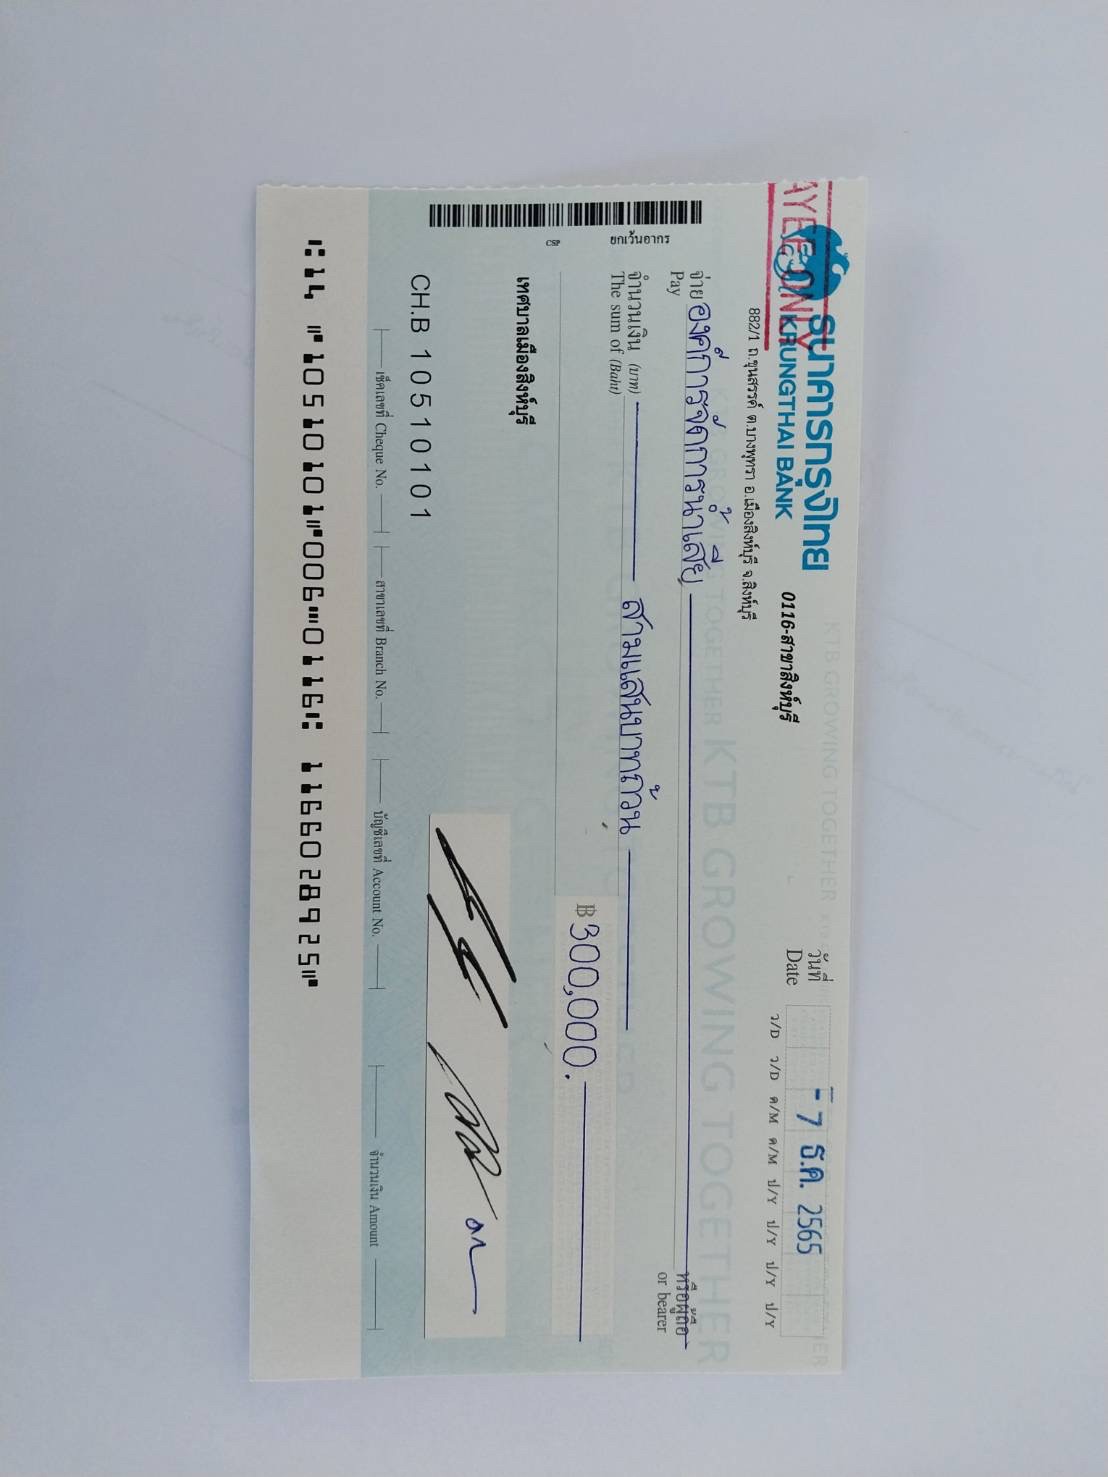 AYEE ONLY
ธนาคารกรุงไทย
KRUNGTHAI BANK
0116-สาขาสิงห์บุรี
882/1 ถ.ขุนสรรค์ ต.บางพุทรา อ.เมืองสิงห์บุรี จ.สิงห์บุรี
KTB GROWING TOGETHER
วันที่ - 7 ธ.ค. 2565
Date
ว/D ว/D ด/M ด/M ป/Y ป/Y ป/Y ป/Y
KTB GROWING TOGETHER
จ่าย องค์การจัดการน้ำเสีย หรือผู้ถือ
Pay or bearer
จำนวนเงิน (บาท) สามแสนบาทถ้วน
The sum of (Baht)
฿ 300,000.-
ยกเว้นอากร
CSP
เทศบาลเมืองสิงห์บุรี
CH.B 10510101
เช็คเลขที่ Cheque No. สาขาเลขที่ Branch No. บัญชีเลขที่ Account No. จำนวนเงิน Amount
⑆14 ⑈10510101⑈006⑉0116⑆ 1166028925⑈